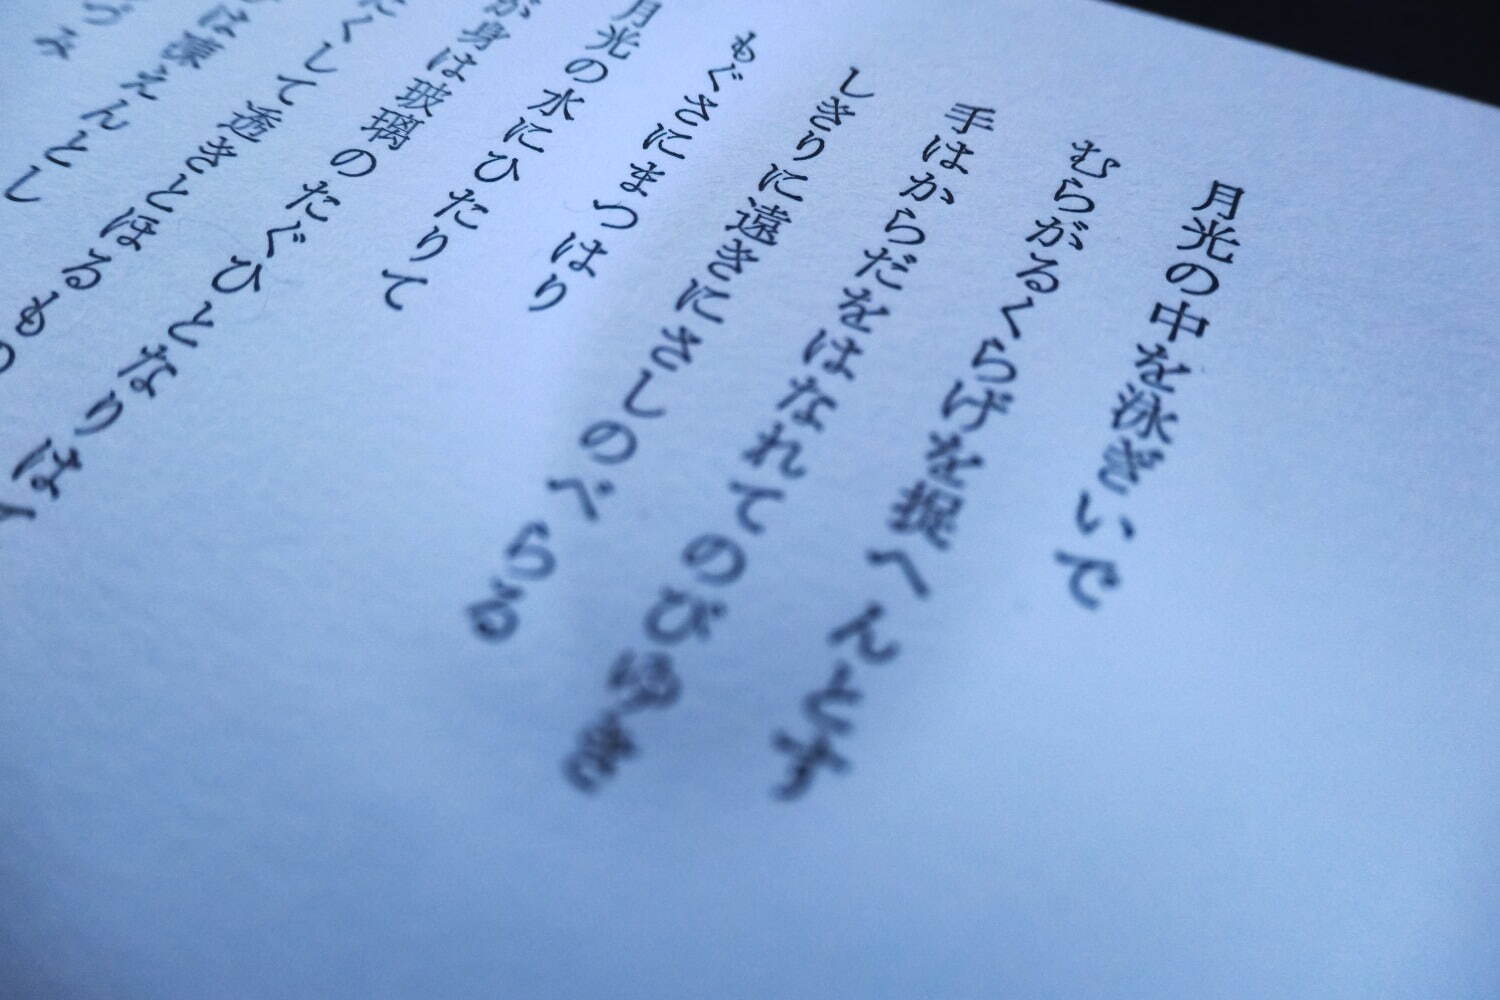 月光の中を泳ぎいで
むらがるくらげを捉へんとす
手はからだをはなれてのびゆき
しきりに遠きにさしのべらる
もぐさにまつはり
月光の水にひたりて
が身は玻璃のたぐひとなりは
くして透きとほるもの
は凍えんとし
づみ